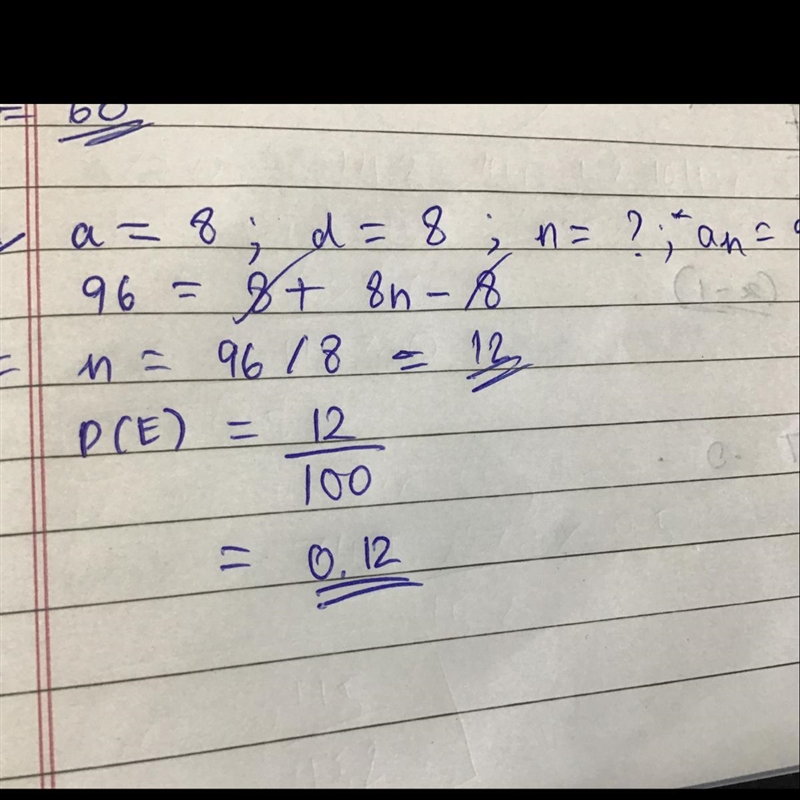 = 60
a = 8 ; d = 8 ; n = ? ; an = 9
96 = 8 + 8n - 8
= n = 96 / 8 = 12
P(E) = 12
100
= 0.12